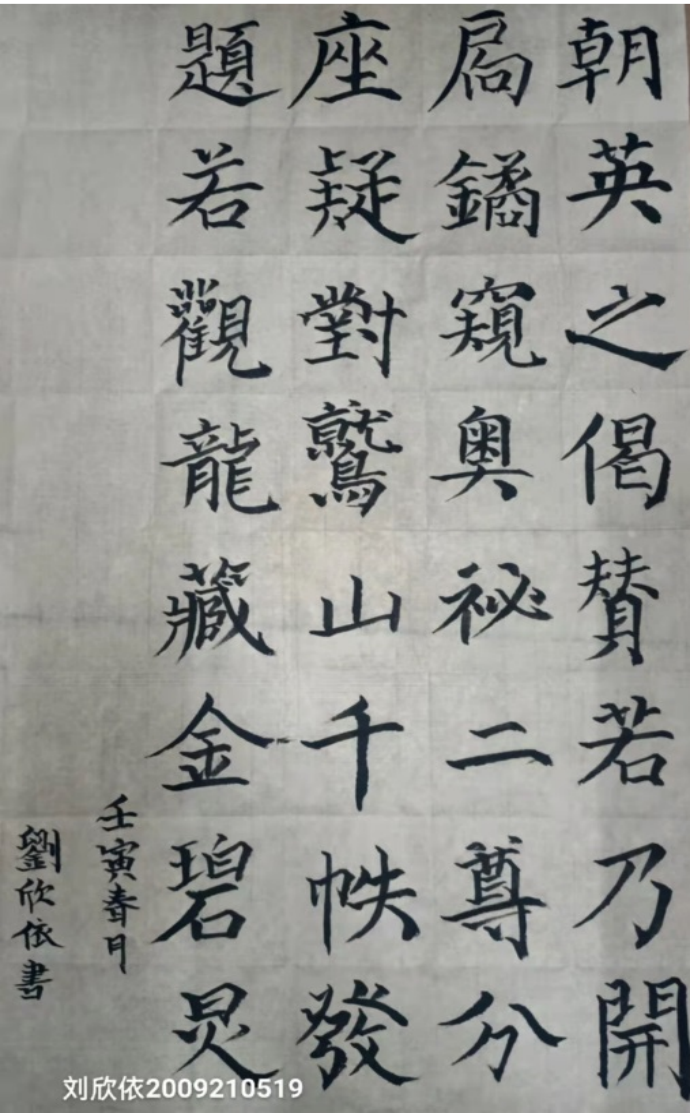 朝英之偈賛若乃開
扄鐍窺奥祕二尊分
座疑對鷲山千帙發
題若觀龍藏金碧炅
壬寅春月
劉欣依書
刘欣依2009210519